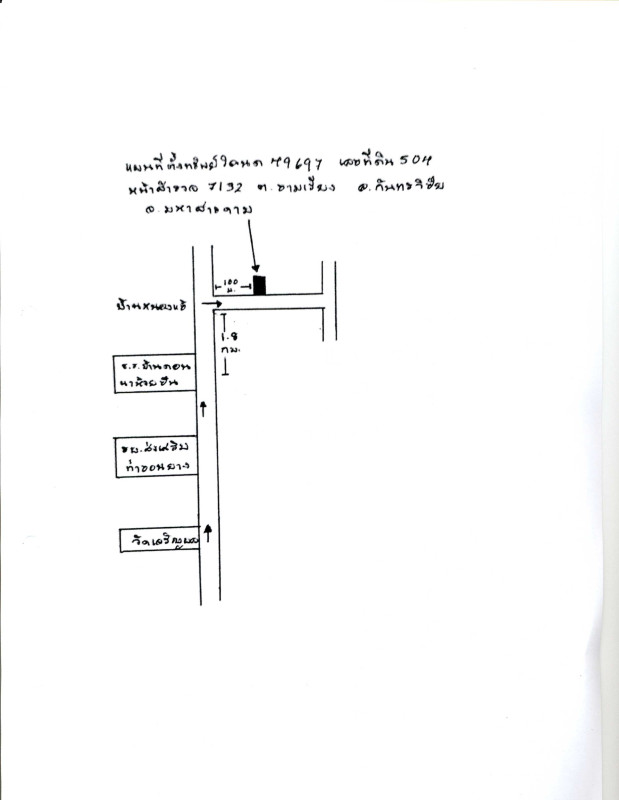 แผนที่ตั้งทรัพย์โฉนด 79697 เลขที่ดิน 504
หน้าสำรวจ 7132 ต.ขามเรียง อ.กันทรวิชัย
จ.มหาสารคาม
100
ม.
1.8
กม.
ร.ร.บ้านดอน
รพ.ส่งเสริม
ท่าขอนยาง
วัดเจริญผล